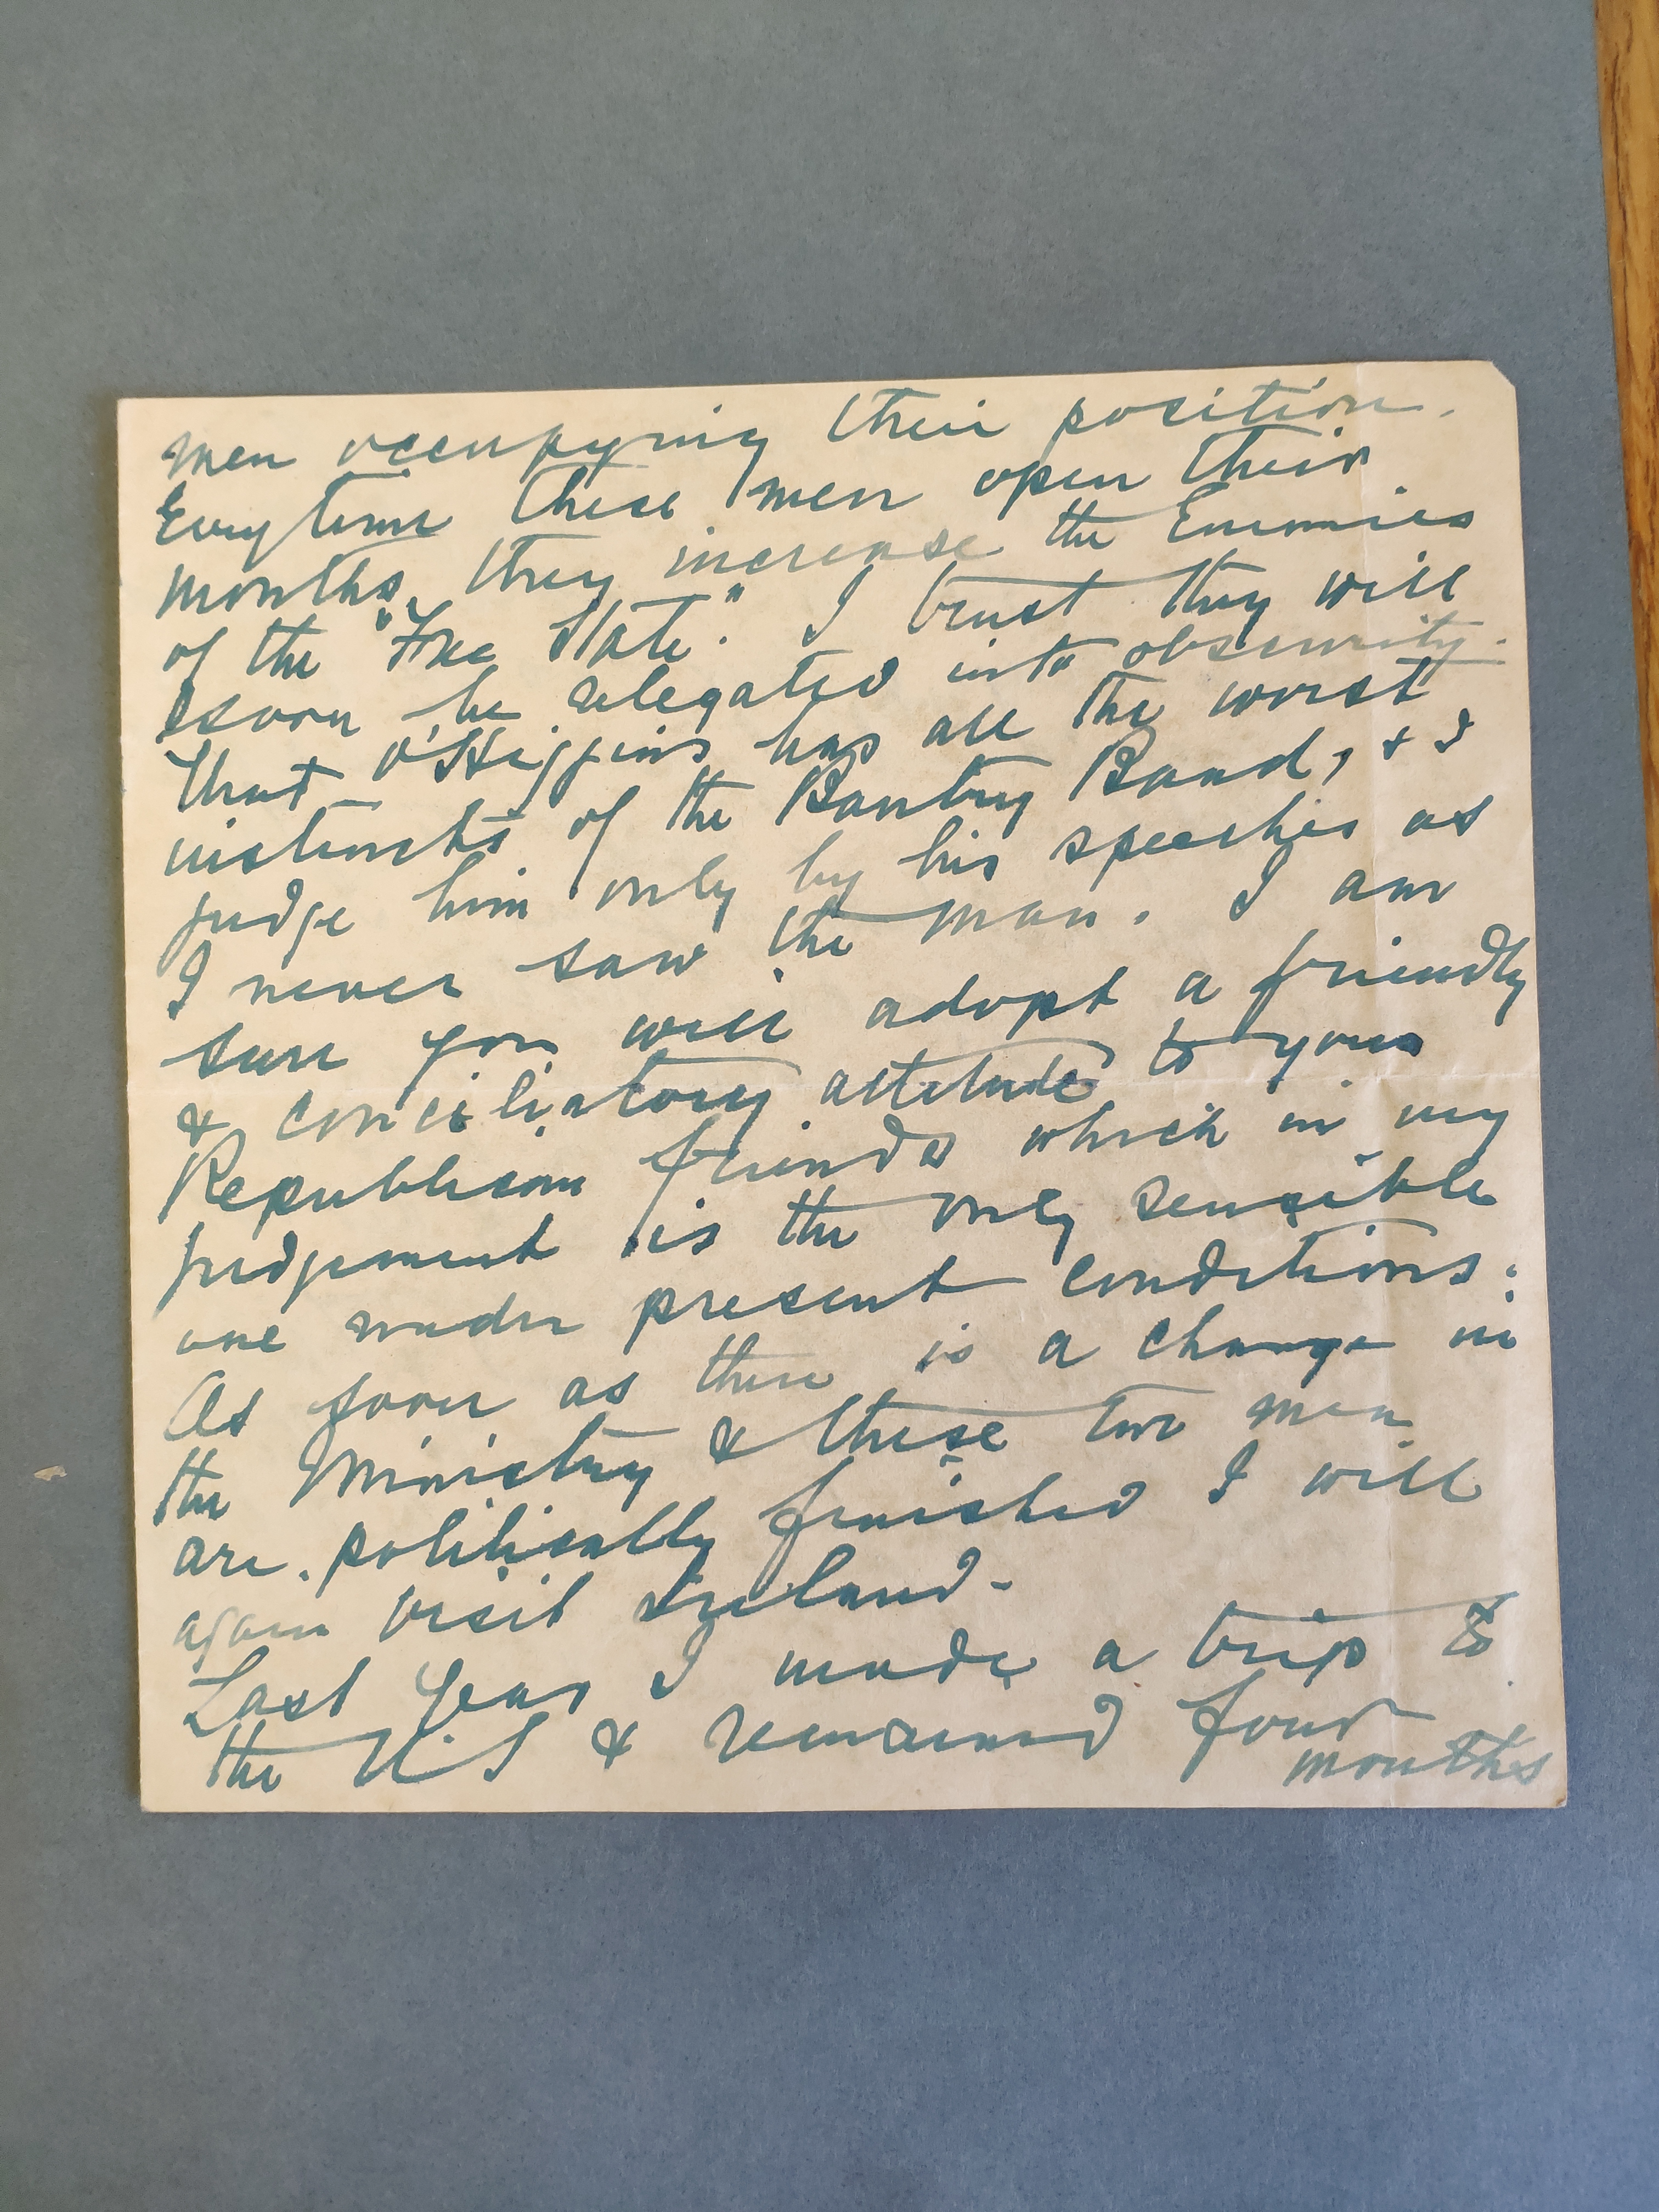 men occupying their position.
Everytime these men open their
mouths, they increase the Enemies
of the "Free State". I trust they will
soon be relegated into obscurity.
That O'Higgins has all the worst
instincts of the Bantry Band, & I
judge him only by his speeches as
I never saw the man. I am
sure you will adopt a friendly
& conciliatory attitude to your
Republican friends which in my
judgement is the only sensible
one under present conditions:
As soon as there is a change in
the Ministry & these two men
are politically finished I will
again visit Ireland.
Last year I made a trip to
the U.S & remained four
months